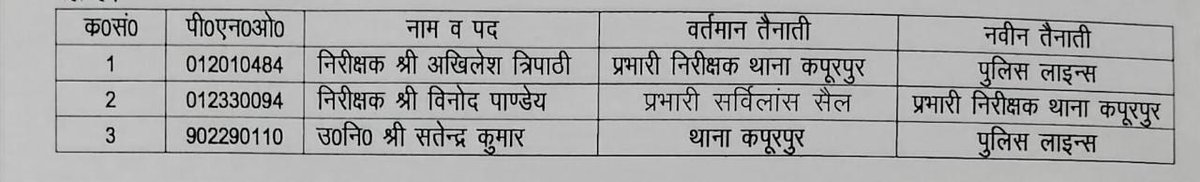 क0सं0 पी0एन0ओ0 नाम व पद वर्तमान तैनाती नवीन तैनाती
1 012010484 निरीक्षक श्री अखिलेश त्रिपाठी प्रभारी निरीक्षक थाना कपूरपुर पुलिस लाइन्स
2 012330094 निरीक्षक श्री विनोद पाण्डेय प्रभारी सर्विलांस सैल प्रभारी निरीक्षक थाना कपूरपुर
3 902290110 उ0नि0 श्री सतेन्द्र कुमार थाना कपूरपुर पुलिस लाइन्स